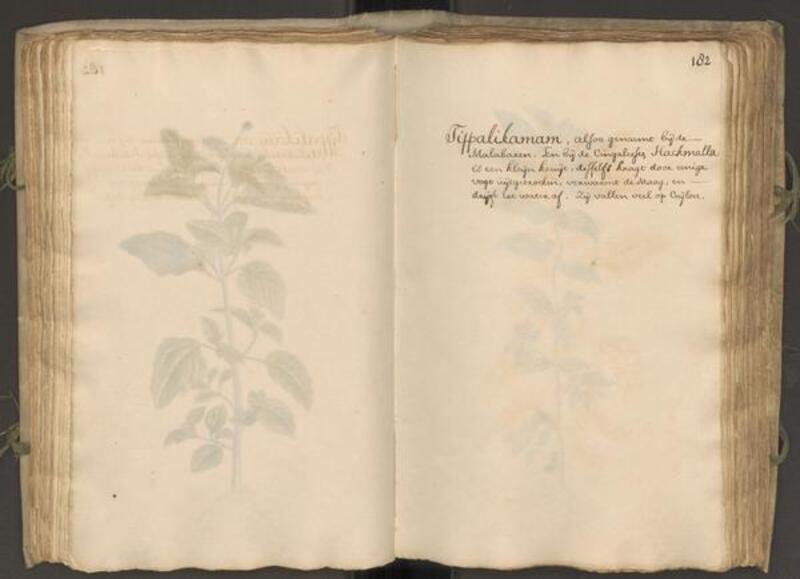 182
Tippalikamam, alsoo genaamt bij de
Malabaren. En bij de Cingaleeses Hackmalla
is een kleijn kruijt, desselfs
verwarmt de Maag, en
drijft het water af. Zij vallen veel op Ceijlon.